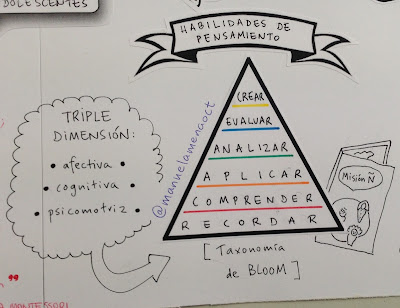 DOLESCENTES
HABILIDADES DE
PENSAMIENTO
TRIPLE
DIMENSIÓN:
• afectiva •
• cognitiva •
• psicomotriz •
@manuelamenaoct
CREAR
EVALUAR
ANALIZAR
APLICAR
COMPRENDER
RECORDAR
[ Taxonomía
de BLOOM ]
Misión Ñ
"
MONTESSORI